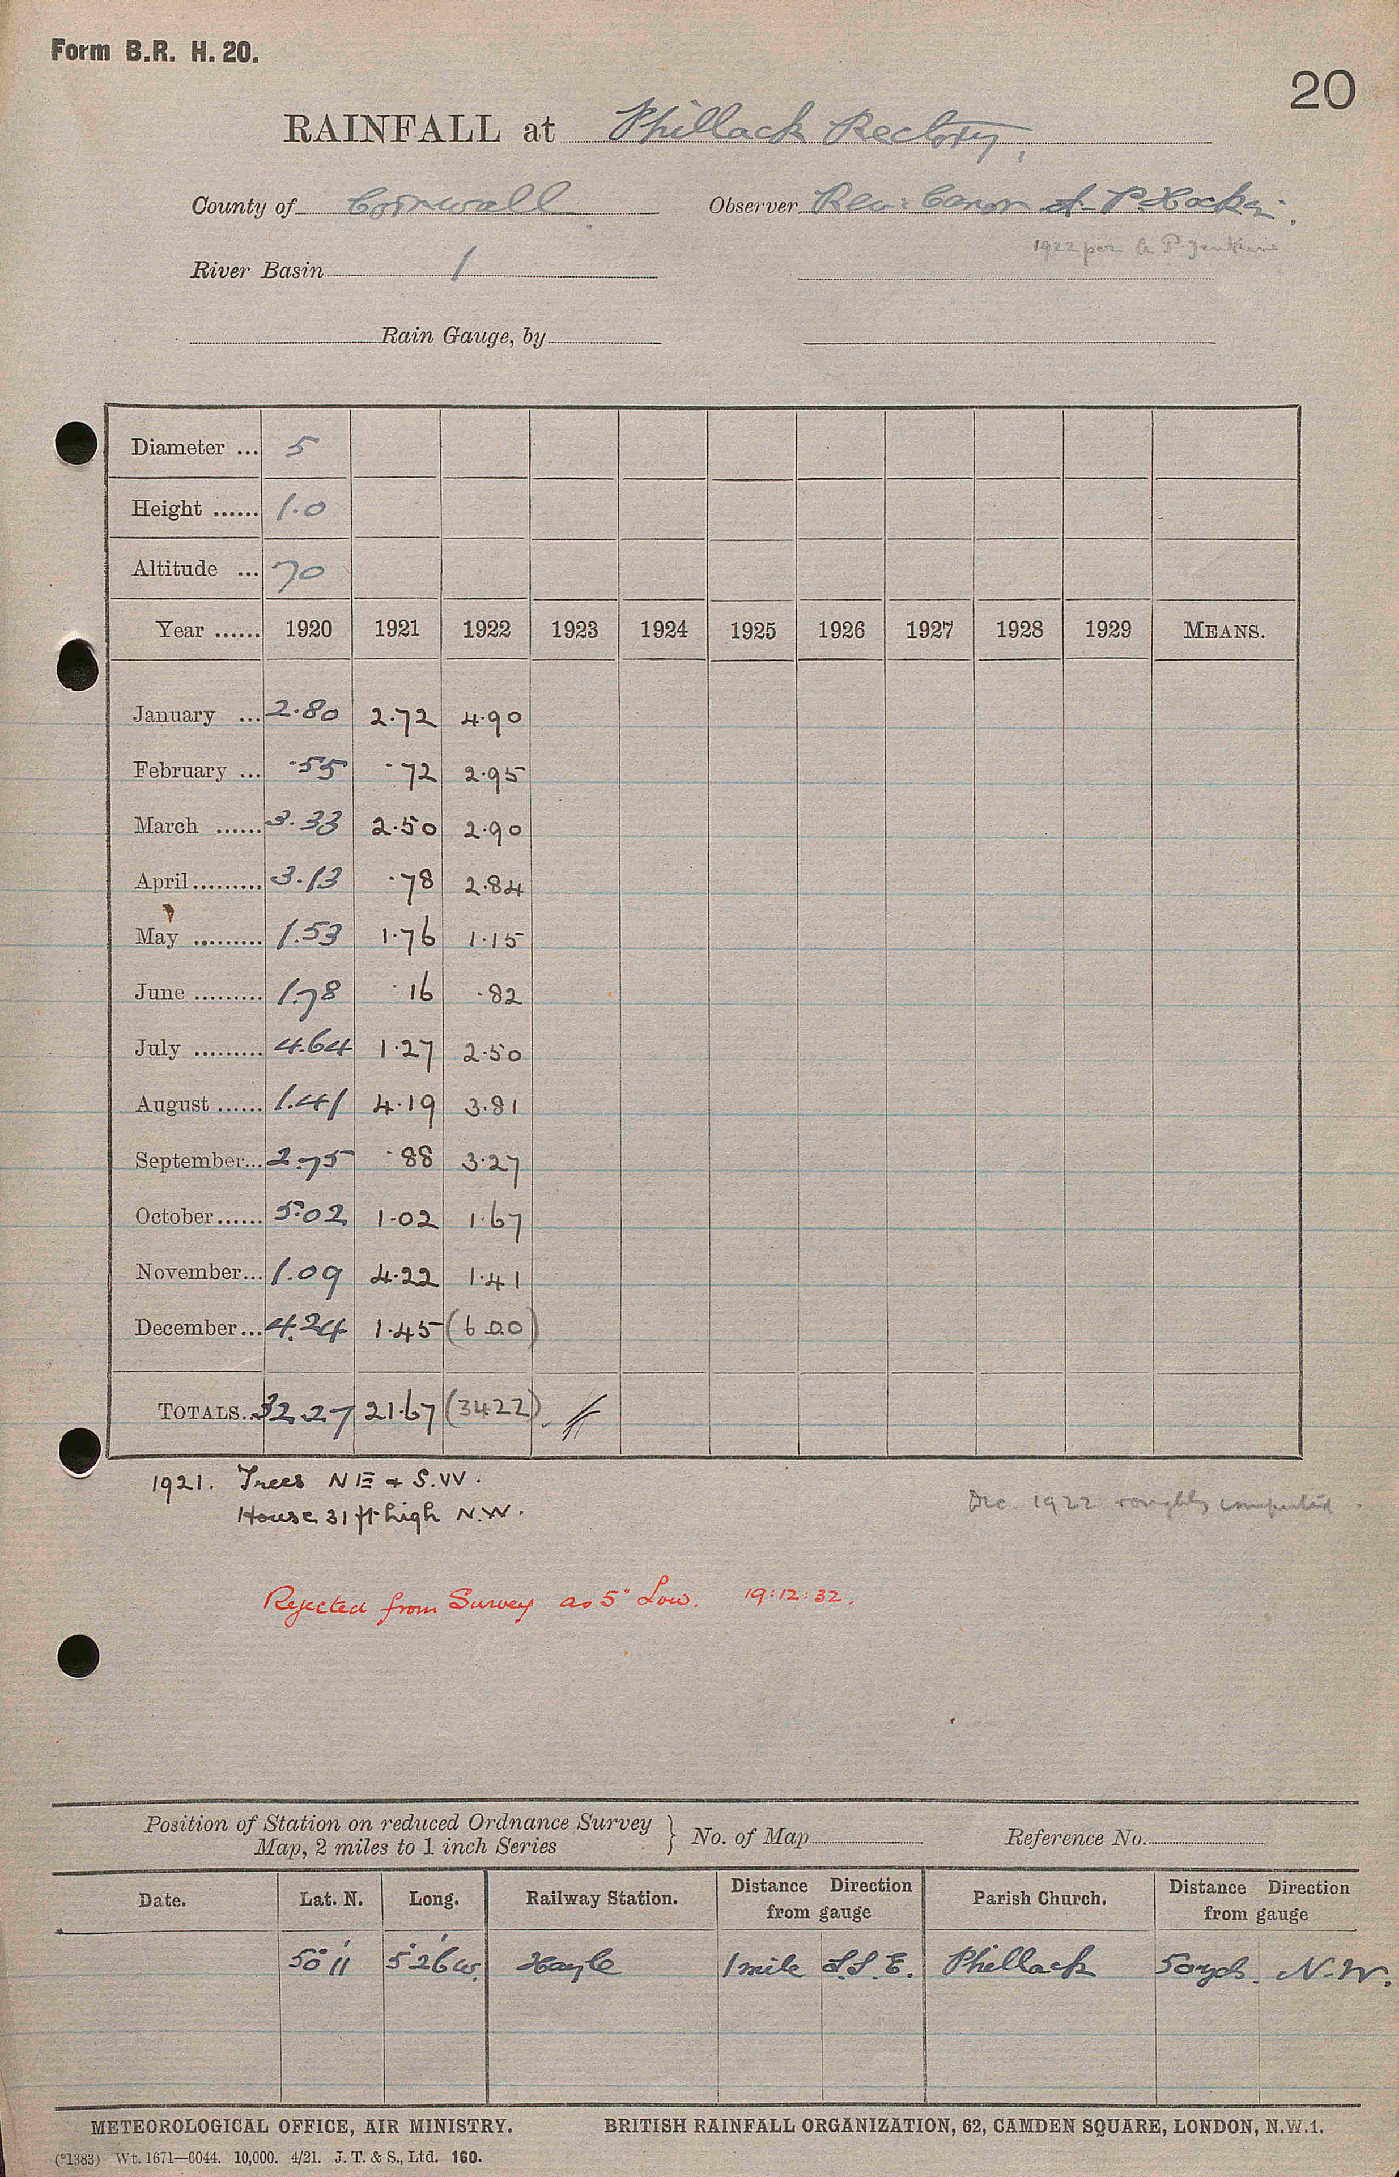 Form B.R. H. 20.
20
RAINFALL at Phillack Rectory,
County of Cornwall Observer Rev: Canon A. P. Hockin.
1922 per A P Jenkin
River Basin 1
Rain Gauge, by
Diameter ... 5
Height ...... 1.0
Altitude ... 70
Year ...... 1920 1921 1922 1923 1924 1925 1926 1927 1928 1929 MEANS.
January ... 2.80 2.72 4.90
February ... .55 .72 2.95
March ...... 3.33 2.50 2.90
April......... 3.13 .78 2.84
May ......... 1.53 1.76 1.15
June ......... 1.78 .16 .82
July ......... 4.64 1.27 2.50
August ...... 1.41 4.19 3.81
September... 2.75 .88 3.27
October...... 5.02 1.02 1.67
November... 1.09 4.22 1.41
December... 4.24 1.45 (6 00)
TOTALS.. 32.27 21.67 (3422).
1921. Trees NE & S.W.
House 31 ft high N.W.
Dec. 1922 roughly computed.
Rejected from Survey as 5" Low. 19:12:32.
Position of Station on reduced Ordnance Survey
Map, 2 miles to 1 inch Series } No. of Map Reference No.
Date. Lat. N. Long. Railway Station. Distance Direction from gauge Parish Church. Distance Direction from gauge
50° 11' 5° 26' W. Hayle 1 mile S.S.E. Phillack 50 yds. N.W.
METEOROLOGICAL OFFICE, AIR MINISTRY. BRITISH RAINFALL ORGANIZATION, 62, CAMDEN SQUARE, LONDON, N.W.1.
(*1383) Wt. 1671—6044. 10,000. 4/21. J. T. & S., Ltd. 160.